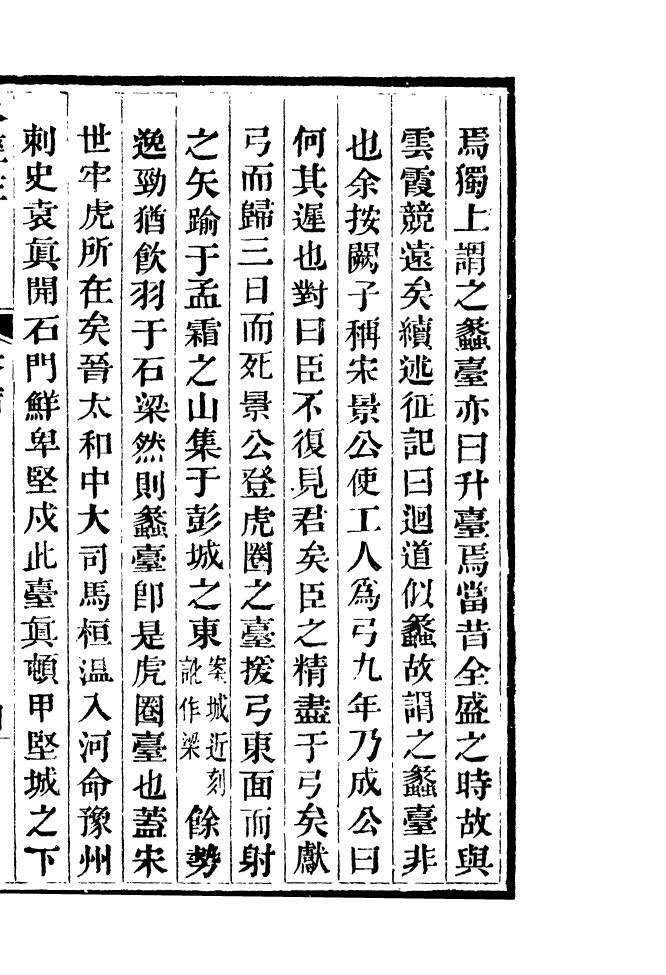 焉獨上謂之蠡臺亦曰升臺焉當昔全盛之時故與
雲霞競遠矣續述征記曰迴道似蠡故謂之蠡臺非
也余按闕子稱宋景公使工人爲弓九年乃成公曰
何其遲也對曰臣不復見君矣臣之精盡于弓矣獻
弓而歸三日而死景公登虎圈之臺援弓東面而射
之矢踰于孟霜之山集于彭城之東案城近刻訛作梁餘勢
逸勁猶飲羽于石梁然則蠡臺卽是虎圈臺也蓋宋
世牢虎所在矣晉太和中大司馬桓温入河命豫州
刺史袁眞開石門鮮卑堅戍此臺眞頓甲堅城之下